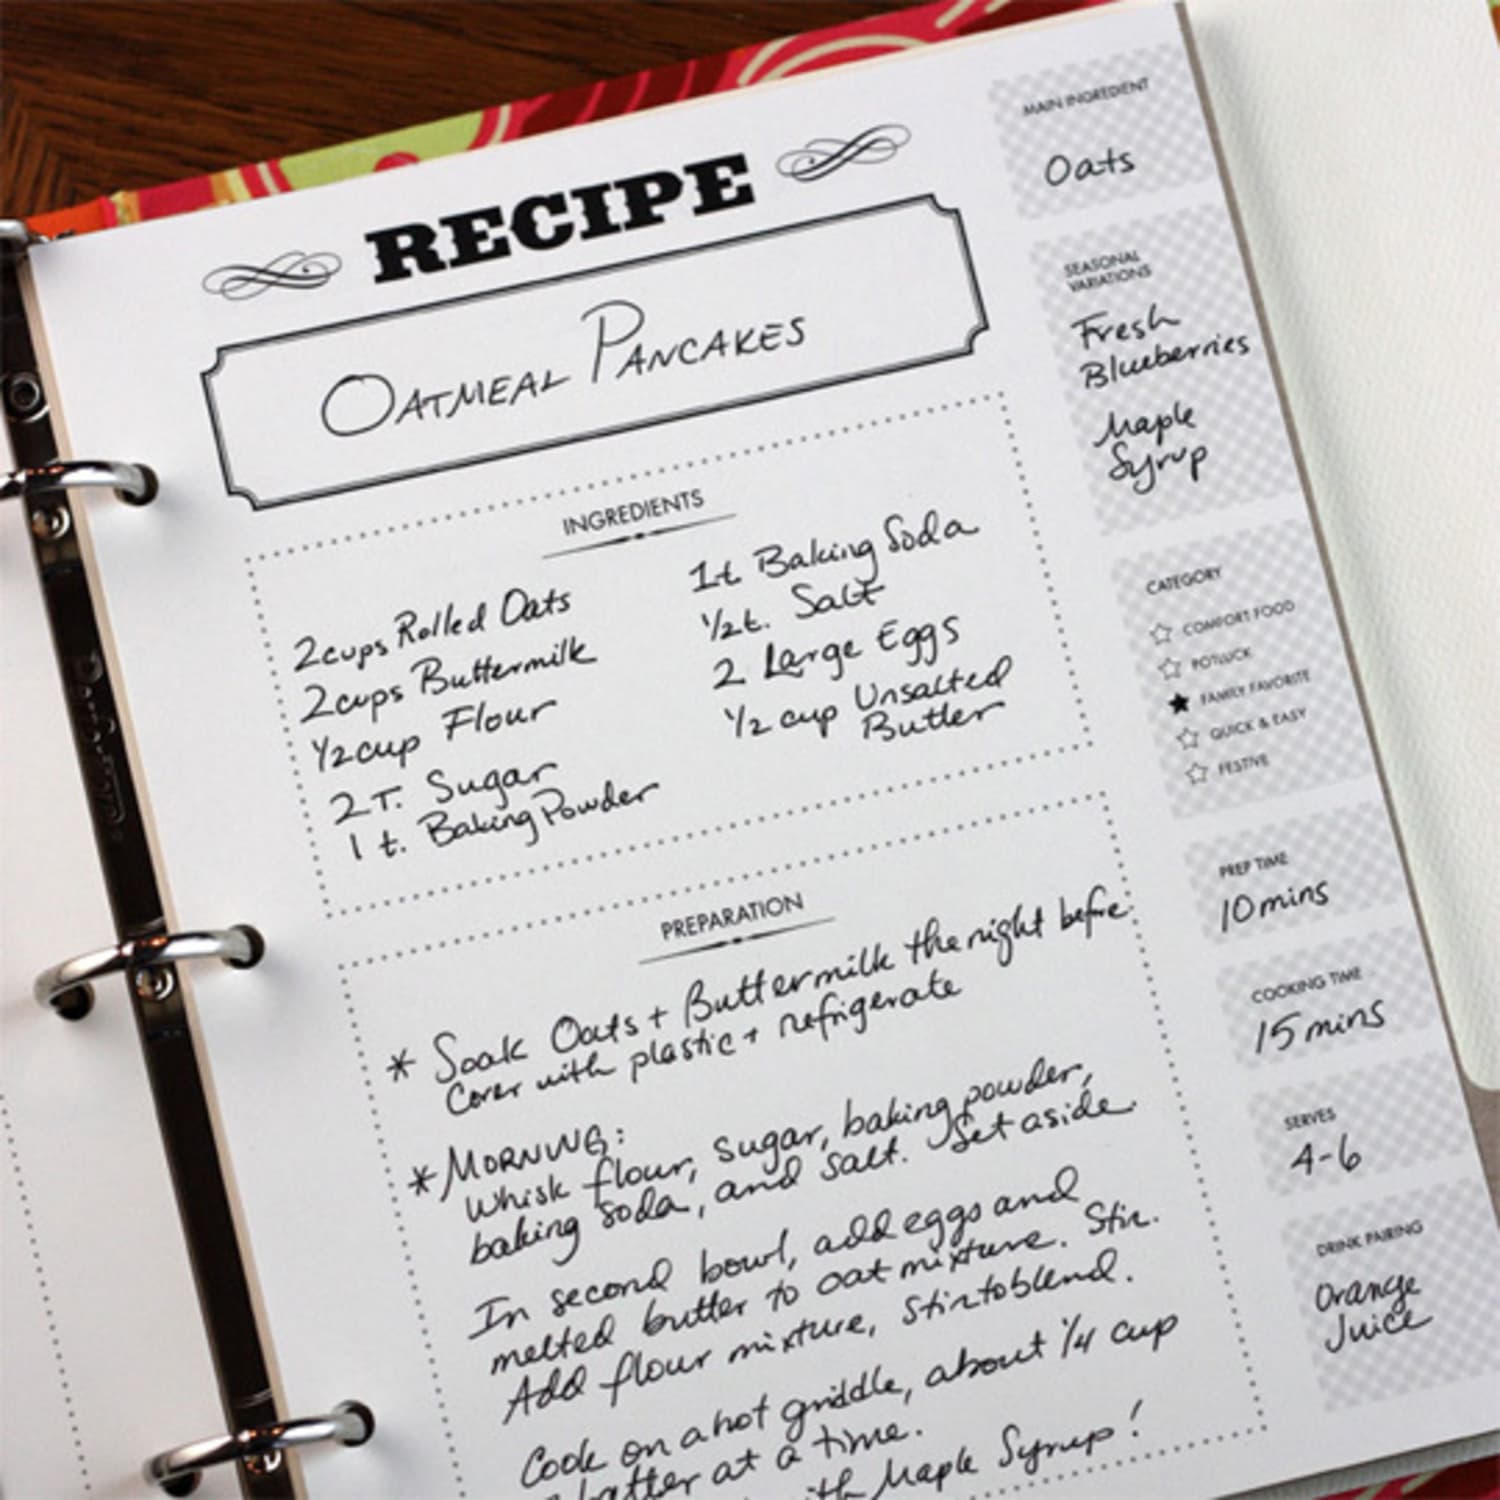 RECIPE
OATMEAL PANCAKES
INGREDIENTS
2 cups Rolled Oats
2 cups Buttermilk
1/2 cup Flour
2 T. Sugar
1 t. Baking Powder
1t. Baking Soda
1/2t. Salt
2 Large Eggs
1/2 cup Unsalted
Butter
PREPARATION
* Soak Oats + Buttermilk the night before.
Cover with plastic + refrigerate
* MORNING:
Whisk flour, sugar, baking powder,
baking soda, and salt. Set aside.
In second bowl, add eggs and
melted butter to oat mixture. Stir.
Add flour mixture, stir to blend.
Cook on a hot griddle, about 1/4 cup
batter at a time.
with Maple Syrup!
MAIN INGREDIENT
Oats
SEASONAL
VARIATIONS
Fresh
Blueberries
Maple
Syrup
CATEGORY
☆ COMFORT FOOD
☆ POTLUCK
★ FAMILY FAVORITE
☆ QUICK & EASY
☆ FESTIVE
PREP TIME
10 mins
COOKING TIME
15 mins
SERVES
4-6
DRINK PAIRING
Orange
Juice